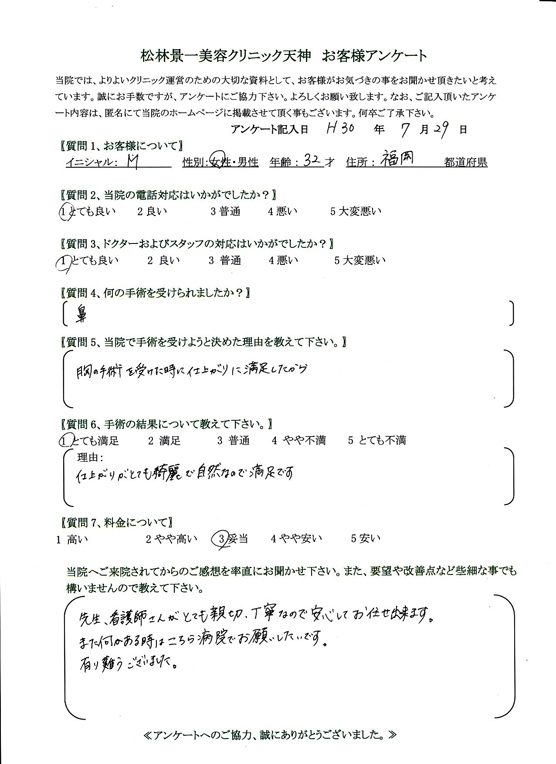 松林景一美容クリニック天神　お客様アンケート
当院では、よりよいクリニック運営のための大切な資料として、お客様がお気づきの事をお聞かせ頂きたいと考え
ています。誠にお手数ですが、アンケートにご協力下さい。よろしくお願い致します。なお、ご記入頂いたアンケ
ート内容は、匿名にて当院のホームページに掲載させて頂く事もございます。何卒ご了承下さい。
アンケート記入日　H30　年　7　月　29　日
〖質問 1、お客様について〗
イニシャル：　M　性別：女性・男性　年齢：32才　住所：　福岡　都道府県
〖質問 2、当院の電話対応はいかがでしたか？〗
1 とても良い　2 良い　3 普通　4 悪い　5 大変悪い
〖質問 3、ドクターおよびスタッフの対応はいかがでしたか？〗
1 とても良い　2 良い　3 普通　4 悪い　5 大変悪い
〖質問 4、何の手術を受けられましたか？〗
鼻
〖質問 5、当院で手術を受けようと決めた理由を教えて下さい。〗
胸の手術を受けた時に仕上がりに満足したから
〖質問 6、手術の結果について教えて下さい。〗
1 とても満足　2 満足　3 普通　4 やや不満　5 とても不満
理由：
仕上がりがとても綺麗で自然なので満足です
〖質問 7、料金について〗
1 高い　2 やや高い　3 妥当　4 やや安い　5 安い
当院へご来院されてからのご感想を率直にお聞かせ下さい。また、要望や改善点など些細な事でも
構いませんので教えて下さい。
先生、看護師さんがとても親切、丁寧なので安心してお任せ出来ます。
また何かある時はこちら病院でお願いしたいです。
有り難うございました。
≪アンケートへのご協力、誠にありがとうございました。≫